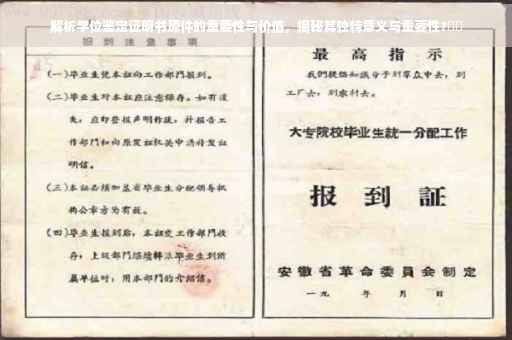 解析学位鉴定证明书原件的重要性与价值，揭秘其独特意义与重要性!
报到注意事项
(一)毕业生凭本证向工作部门报到。
(二)毕业生对本证应注意保存。如有遗
失，应即登报声明作废，并报告工
作部门和向原发证机关申请补发证
明信。
(三)本证必须加盖省毕业生分配领导机
构公章方为有效。
(四)毕业生报到后，本证交工作部门收
存；上级部门继续转派毕业生到所
属单位时，用本部门的介绍信。
最高指示
我们提倡知识分子到群众中去，到
工厂去，到农村去。
大专院校毕业生统一分配工作
报到证
安徽省革命委员会制定
一九 年 月 日